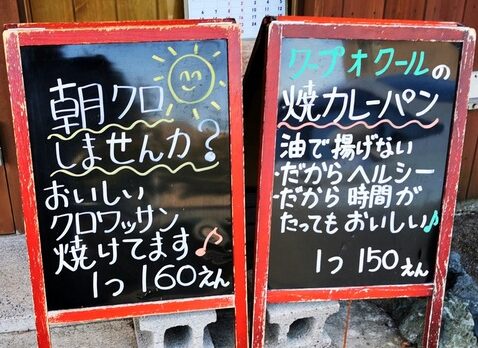 朝クロ
しませんか?
おいしい
クロワッサン
焼けてます♪
1つ 160えん
クープ オ クールの
焼カレーパン
油で揚げない
・だから ヘルシー
・だから 時間が
たってもおいしい♪
1つ 150えん